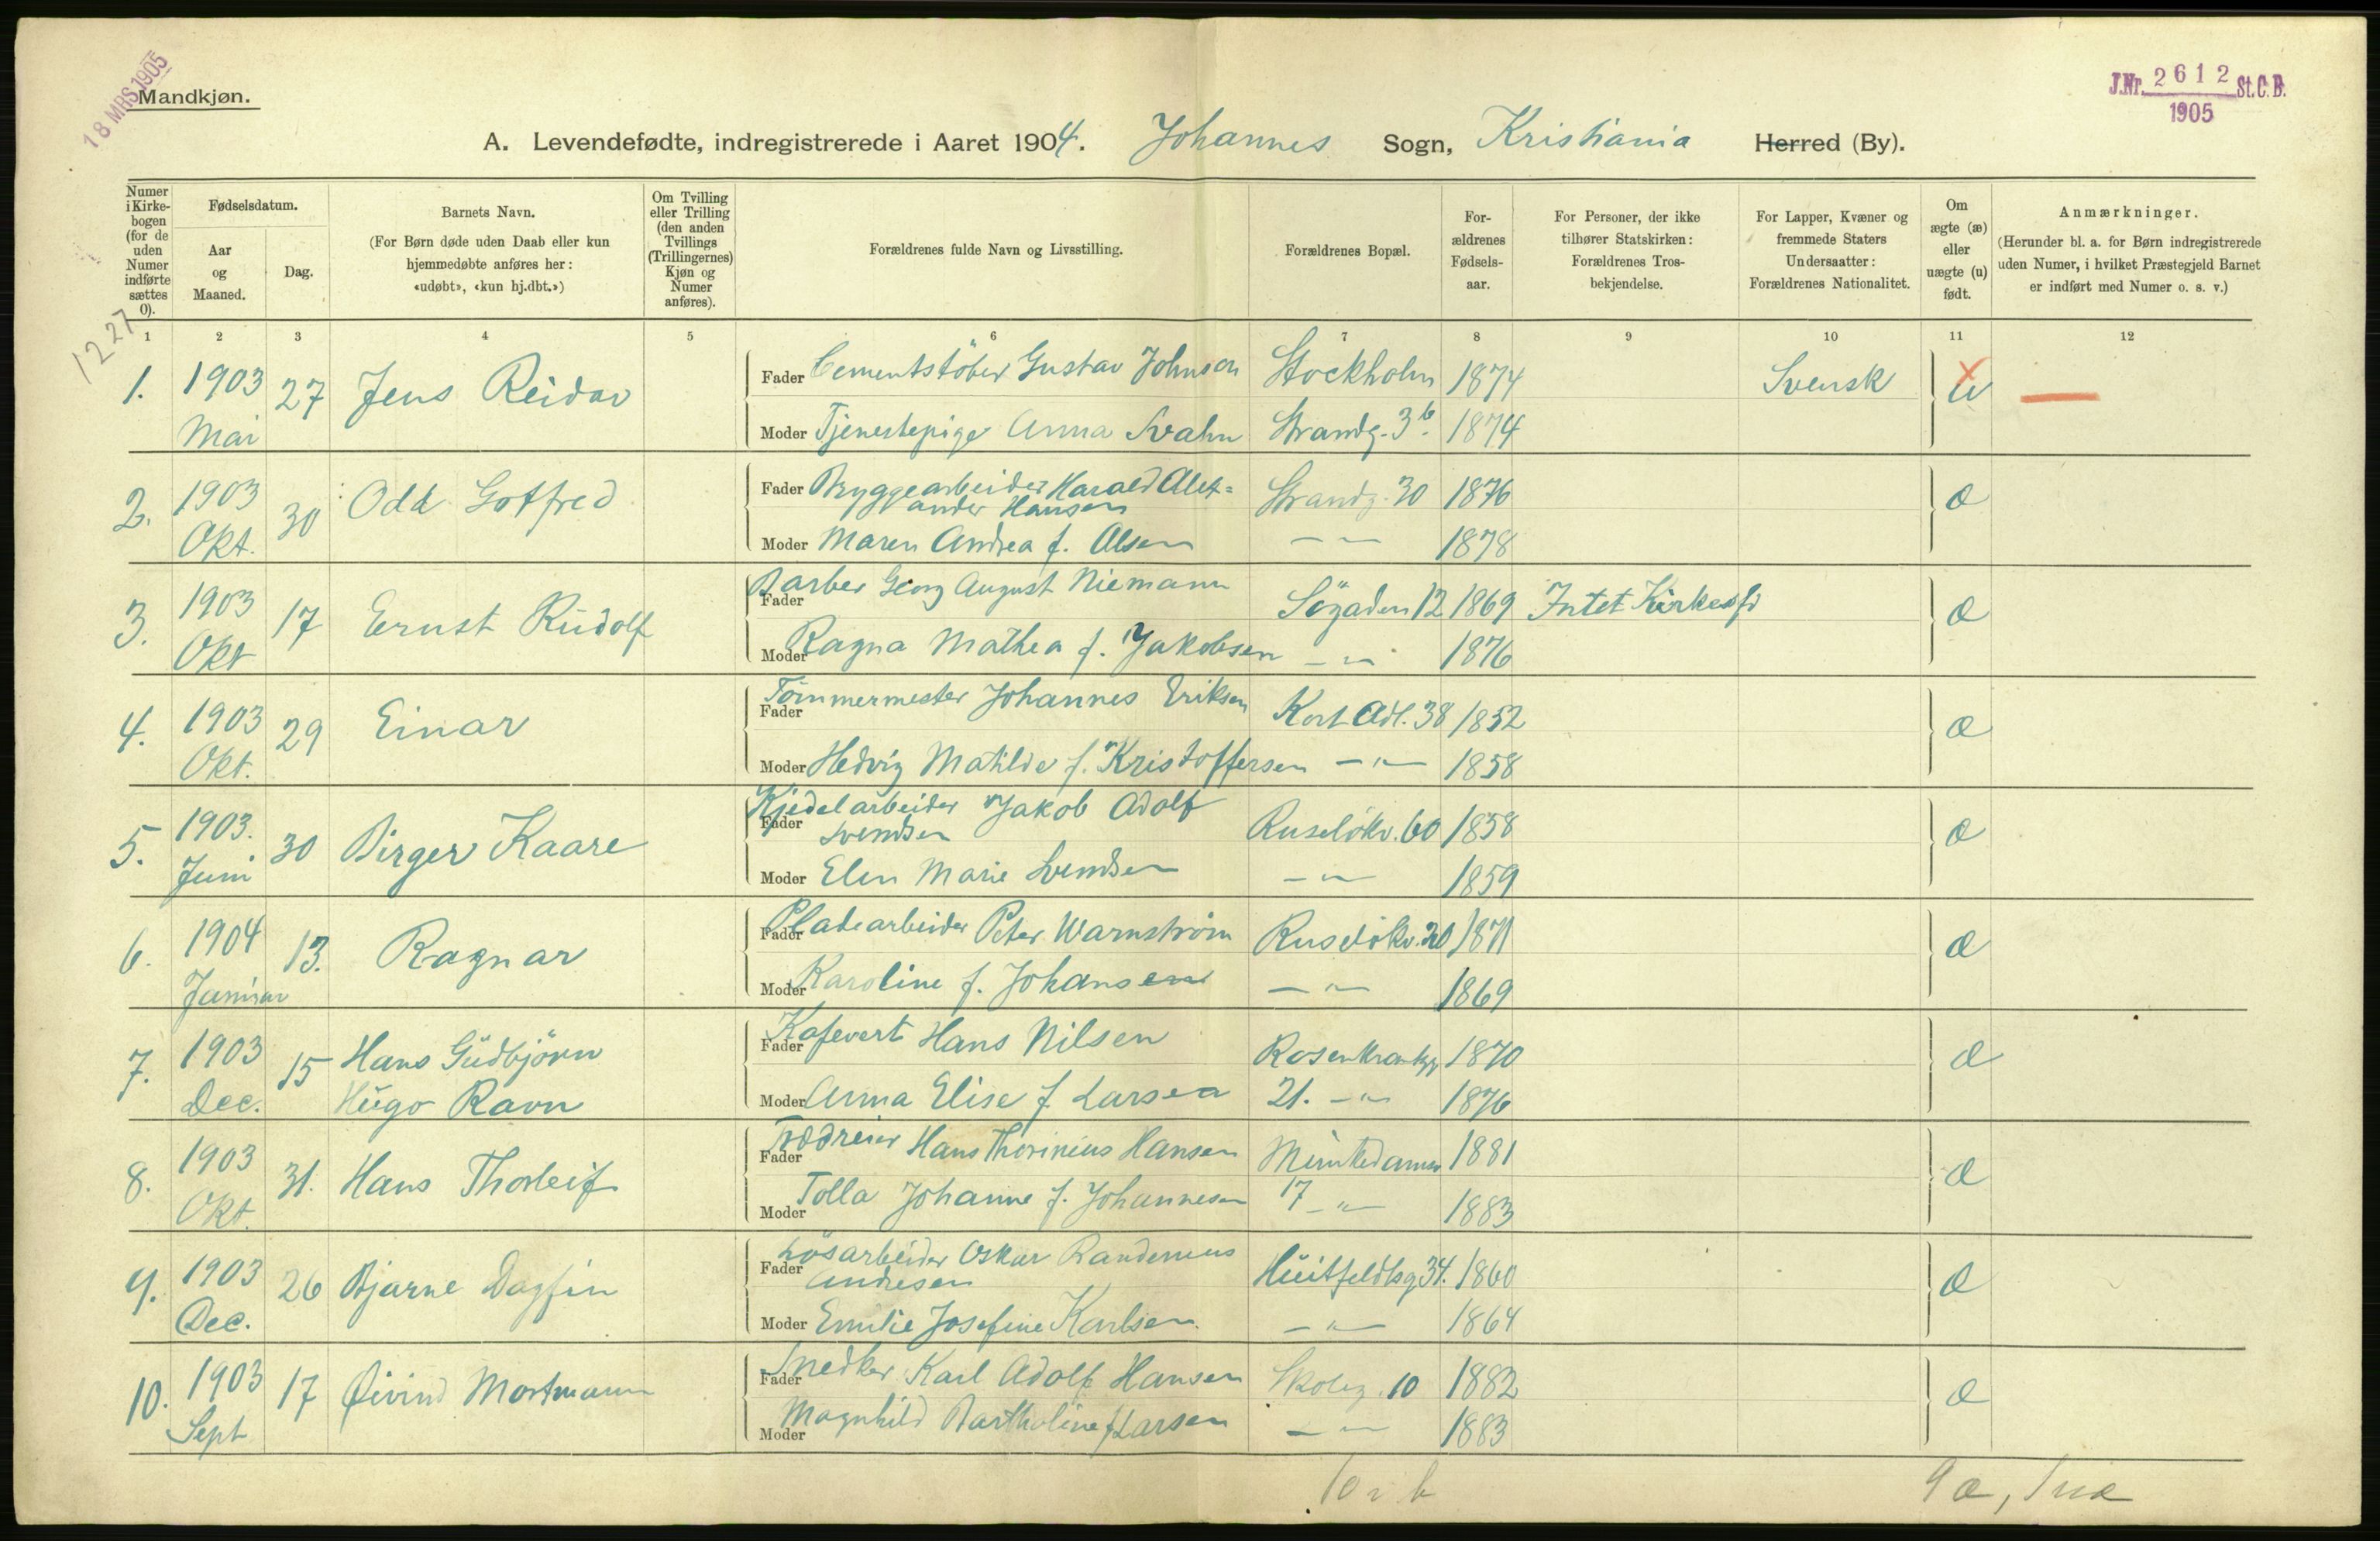 18 MRS. 1905
Mandkjøn.
J.Nr. 2612 St.C.B.
1905
A. Levendefødte, indregistrerede i Aaret 1904. Johannes Sogn, Kristiania Herred (By).
Numer i Kirkebogen (for de uden Numer indførte sættes 0).
Fødselsdatum.
Aar og Maaned.
Dag.
Barnets Navn.
(For Børn døde uden Daab eller kun hjemmedøbte anføres her: «udøbt», «kun hj.dbt.»)
Om Tvilling eller Trilling (den anden Tvillings (Trillingernes) Kjøn og Numer anføres).
Forældrenes fulde Navn og Livsstilling.
Forældrenes Bopæl.
Forældrenes Fødselsaar.
For Personer, der ikke tilhører Statskirken: Forældrenes Trosbekjendelse.
For Lapper, Kvæner og fremmede Staters Undersaatter: Forældrenes Nationalitet.
Om ægte (æ) eller uægte (u) født.
Anmærkninger.
(Herunder bl. a. for Børn indregistrerede uden Numer, i hvilket Præstegjeld Barnet er indført med Numer o. s. v.)
1 2 3 4 5 6 7 8 9 10 11 12
1227
1. 1903 Mai 27 Jens Reidar
Fader Cementstöber Gustav Johnson Stockholm 1874 Svensk u
Moder Tjenestepige Anna Svahn Strandg. 3b. 1874
2. 1903 Okt. 30 Odd Gotfred
Fader Bryggearbeider Harald Alex=
ander Hansen Strandg. 30 1876 æ
Moder Maren Andrea f. Olsen — " — 1878
3. 1903 Okt 17 Ernst Rudolf
Fader Barber Georg August Niemann Sögaden 12 1869 Intet Kirkesf æ
Moder Ragna Mathea f. Jakobsen — " — 1876
4. 1903 Okt. 29 Einar
Fader Tömmermester Johannes Eriksen Kort Adl. 38 1852 æ
Moder Hedvig Matilde f. Kristoffersen — " — 1858
5. 1903. Juni 30 Birger Kaare
Fader Kjedelarbeider Jakob Adolf
Svendsen Ruselökv. 60 1858 æ
Moder Elen Marie Svendsen — " — 1859
6. 1904 Januar 13. Ragnar
Fader Pladearbeider Peter Warnström Ruselökv. 20 1871 æ
Moder Karoline f. Johansen — " — 1869
7. 1903 Dec. 15 Hans Gudbjörn
Hugo Ravn
Fader Kafevert Hans Nilsen Rosenkrantzg 1870 æ
Moder Anna Elise f. Larsen 21. — " — 1876
8. 1903 Okt. 31. Hans Thorleif
Fader Hans Thorinius Hansen Munkedamsv 1881 æ
Moder Tolla Johanne f. Johannesen 17 — " — 1883
9. 1903 Dec. 26 Bjarne Dagfin
Fader Lösarbeider Oskar Randenius
Andresen Huitfeldtsg 34. 1860 æ
Moder Emilie Josefine Karlsen — " — 1864
10. 1903 Sept 17 Øivind Mortmann
Fader Snedker Karl Adolf Hansen Skoleg. 10 1882 æ
Moder Magnhild Bartholine f Larsen — " — 1883
10 i b
9 æ, 1 uæ